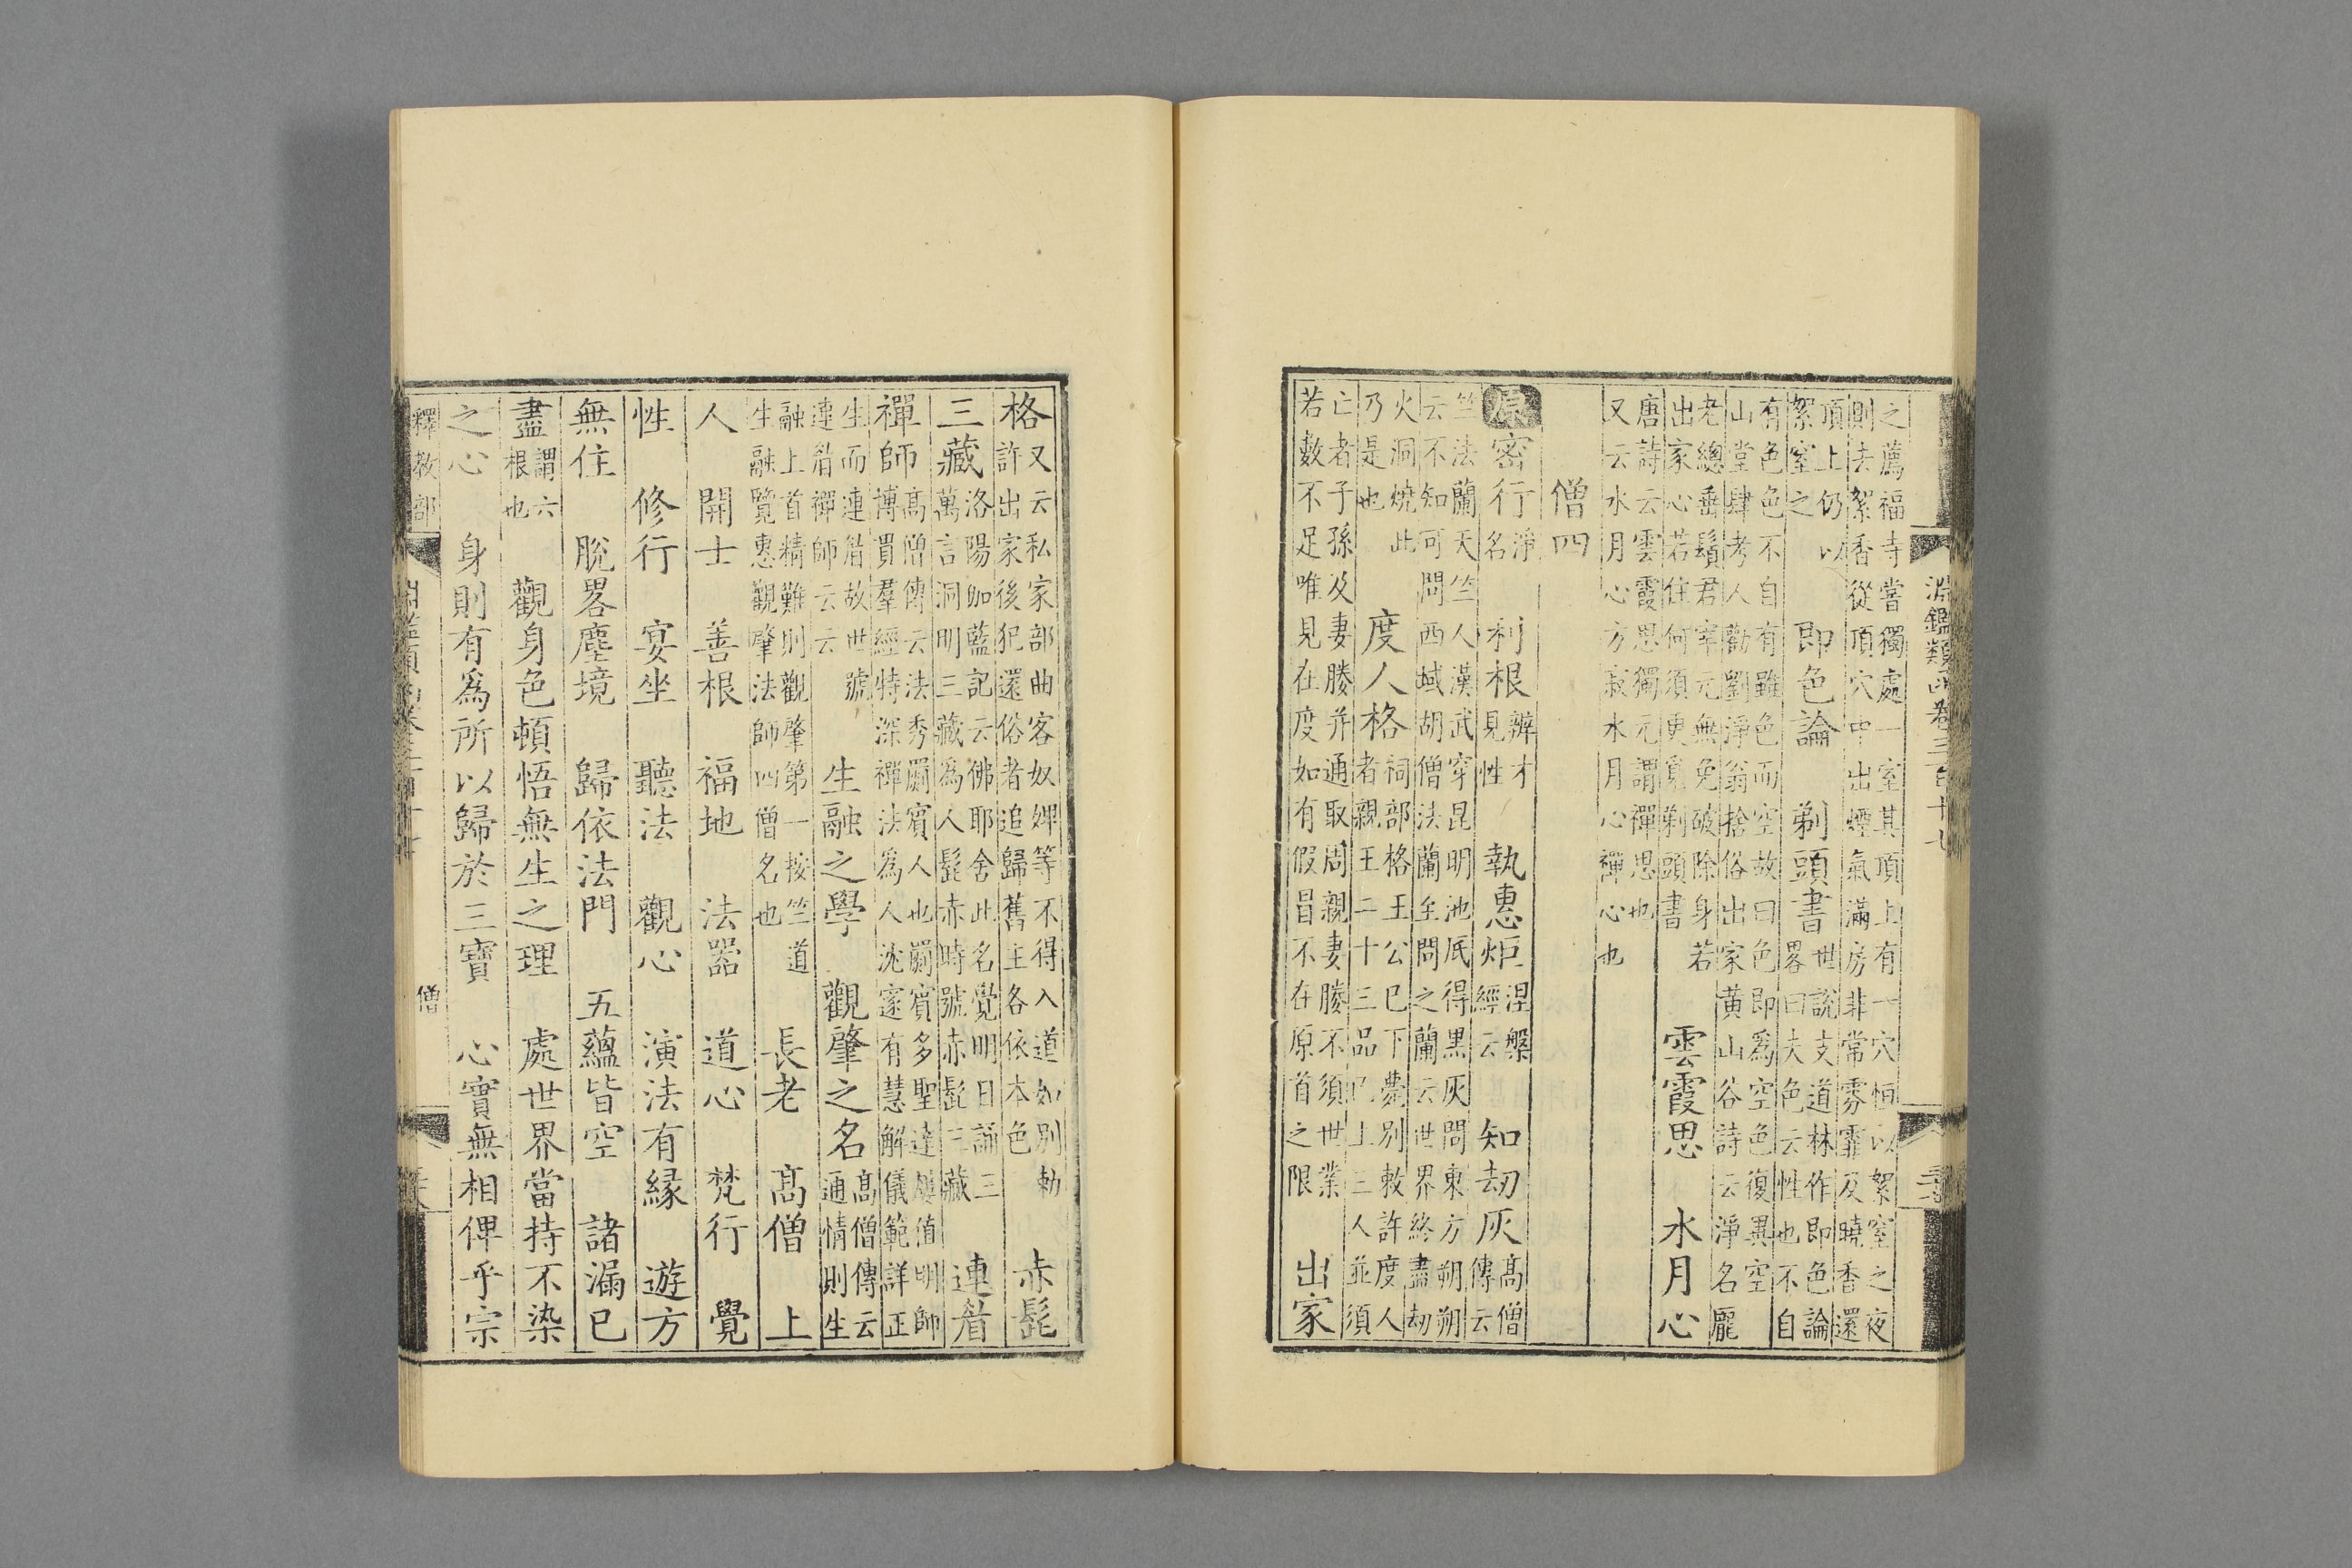 淵鑑類函卷三百十七
之薦福寺嘗獨處一室其頂上有一穴恒以絮窒之夜
則去絮香從頂穴中出煙氣滿房非常雰霏及曉香還
頂上仍以
絮窒之
即色論
剃頭書
世說支道林作即色論
畧曰夫色云性也不自
有色色不自有雖色而空故曰色即為空色復異空
山堂肆考人勸劉淨翁捨俗出家黄山谷詩云淨名龐
老總垂鬚君宰元無免破除身若
出家心若住何須更覓剃頭書
雲霞思
水月心
唐詩云雲霞思獨元謂禪思也
又云水月心方寂水月心禪心也
僧四
原
密行
淨
名
利根
辨才
見性
執惠炬
涅槃
經云
知刧灰
髙僧
傳云
竺法蘭天竺人漢武穿昆明池底得黒灰問東方朔朔
云不知可問西域胡僧法蘭至問之蘭云世界終盡劫
火洞燒此
乃是也
度人格
祠部格王公已下薨别敕許度人
者親王二十三品已上三人並須
亡者子孫及妻媵并通取周親妻媵不須世業
若數不足唯見在度如有假冒不在原首之限
出家
格
又云私家部曲客奴婢等不得入道如别勅
許出家後犯還俗者追歸舊主各依本色
赤髭
三藏
洛陽伽藍記云佛耶舍此名覺明日誦三
萬言洞明三藏為人髭赤時號赤髭三藏
連眉
禪師
髙僧傳云法秀罽賓人也罽賓多聖達屢值明師
博貫羣經特深禪法為人沈邃有慧解儀範詳正
生而連眉故世號
連眉禪師云云
生融之學
觀肇之名
髙僧傳云
通情則生
融上首精難則觀肇第一按竺道
生融覽惠觀肇法師四僧名也
長老
髙僧
上
人
開士
善根
福地
法器
道心
梵行
覺
性
修行
宴坐
聽法
觀心
演法有緣
遊方
無住
脫畧塵境
歸依法門
五蘊皆空
諸漏已
盡
謂六
根也
觀身色頓悟無生之理
處世界當持不染
之心
身則有為所以歸於三寶
心實無相俾乎宗
釋教部
僧